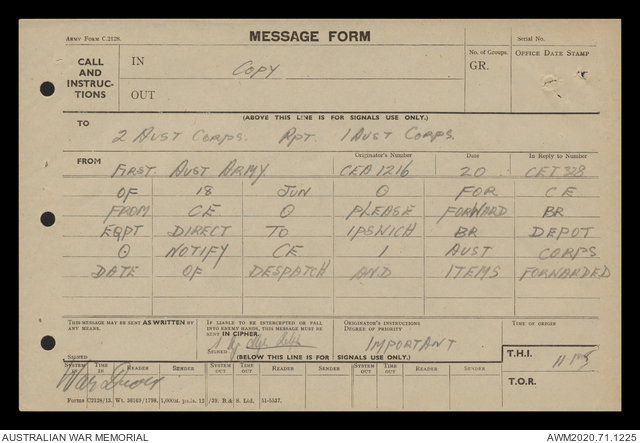 ARMY FORM C.2128. MESSAGE FORM Serial No.
CALL AND INSTRUCTIONS IN Copy No. of Groups. GR. OFFICE DATE STAMP
OUT
(ABOVE THIS LINE IS FOR SIGNALS USE ONLY.)
TO 2 AUST CORPS. Rpt. 1 AUST CORPS.
FROM Originator's Number Date In Reply to Number
FIRST. AUST ARMY CEA 1216 20 CET 328
OF 18 JUN O FOR CE
FROM CE O PLEASE FORWARD BR
EQPT DIRECT TO IPSWICH BR DEPOT
O NOTIFY CE 1 AUST CORPS
DATE OF DESPATCH AND ITEMS FORWARDED
THIS MESSAGE MAY BE SENT AS WRITTEN BY ANY MEANS. IF LIABLE TO BE INTERCEPTED OR FALL INTO ENEMY HANDS, THIS MESSAGE MUST BE SENT IN CIPHER. ORIGINATOR'S INSTRUCTIONS DEGREE OF PRIORITY TIME OF ORIGIN
IMPORTANT
SIGNED SIGNED
(BELOW THIS LINE IS FOR SIGNALS USE ONLY.) T.H.I.
SYSTEM IN TIME IN READER SENDER SYSTEM OUT TIME OUT READER SENDER SYSTEM OUT TIME OUT READER SENDER
T.O.R.
War Diary
AUSTRALIAN WAR MEMORIAL AWM2020.71.1225